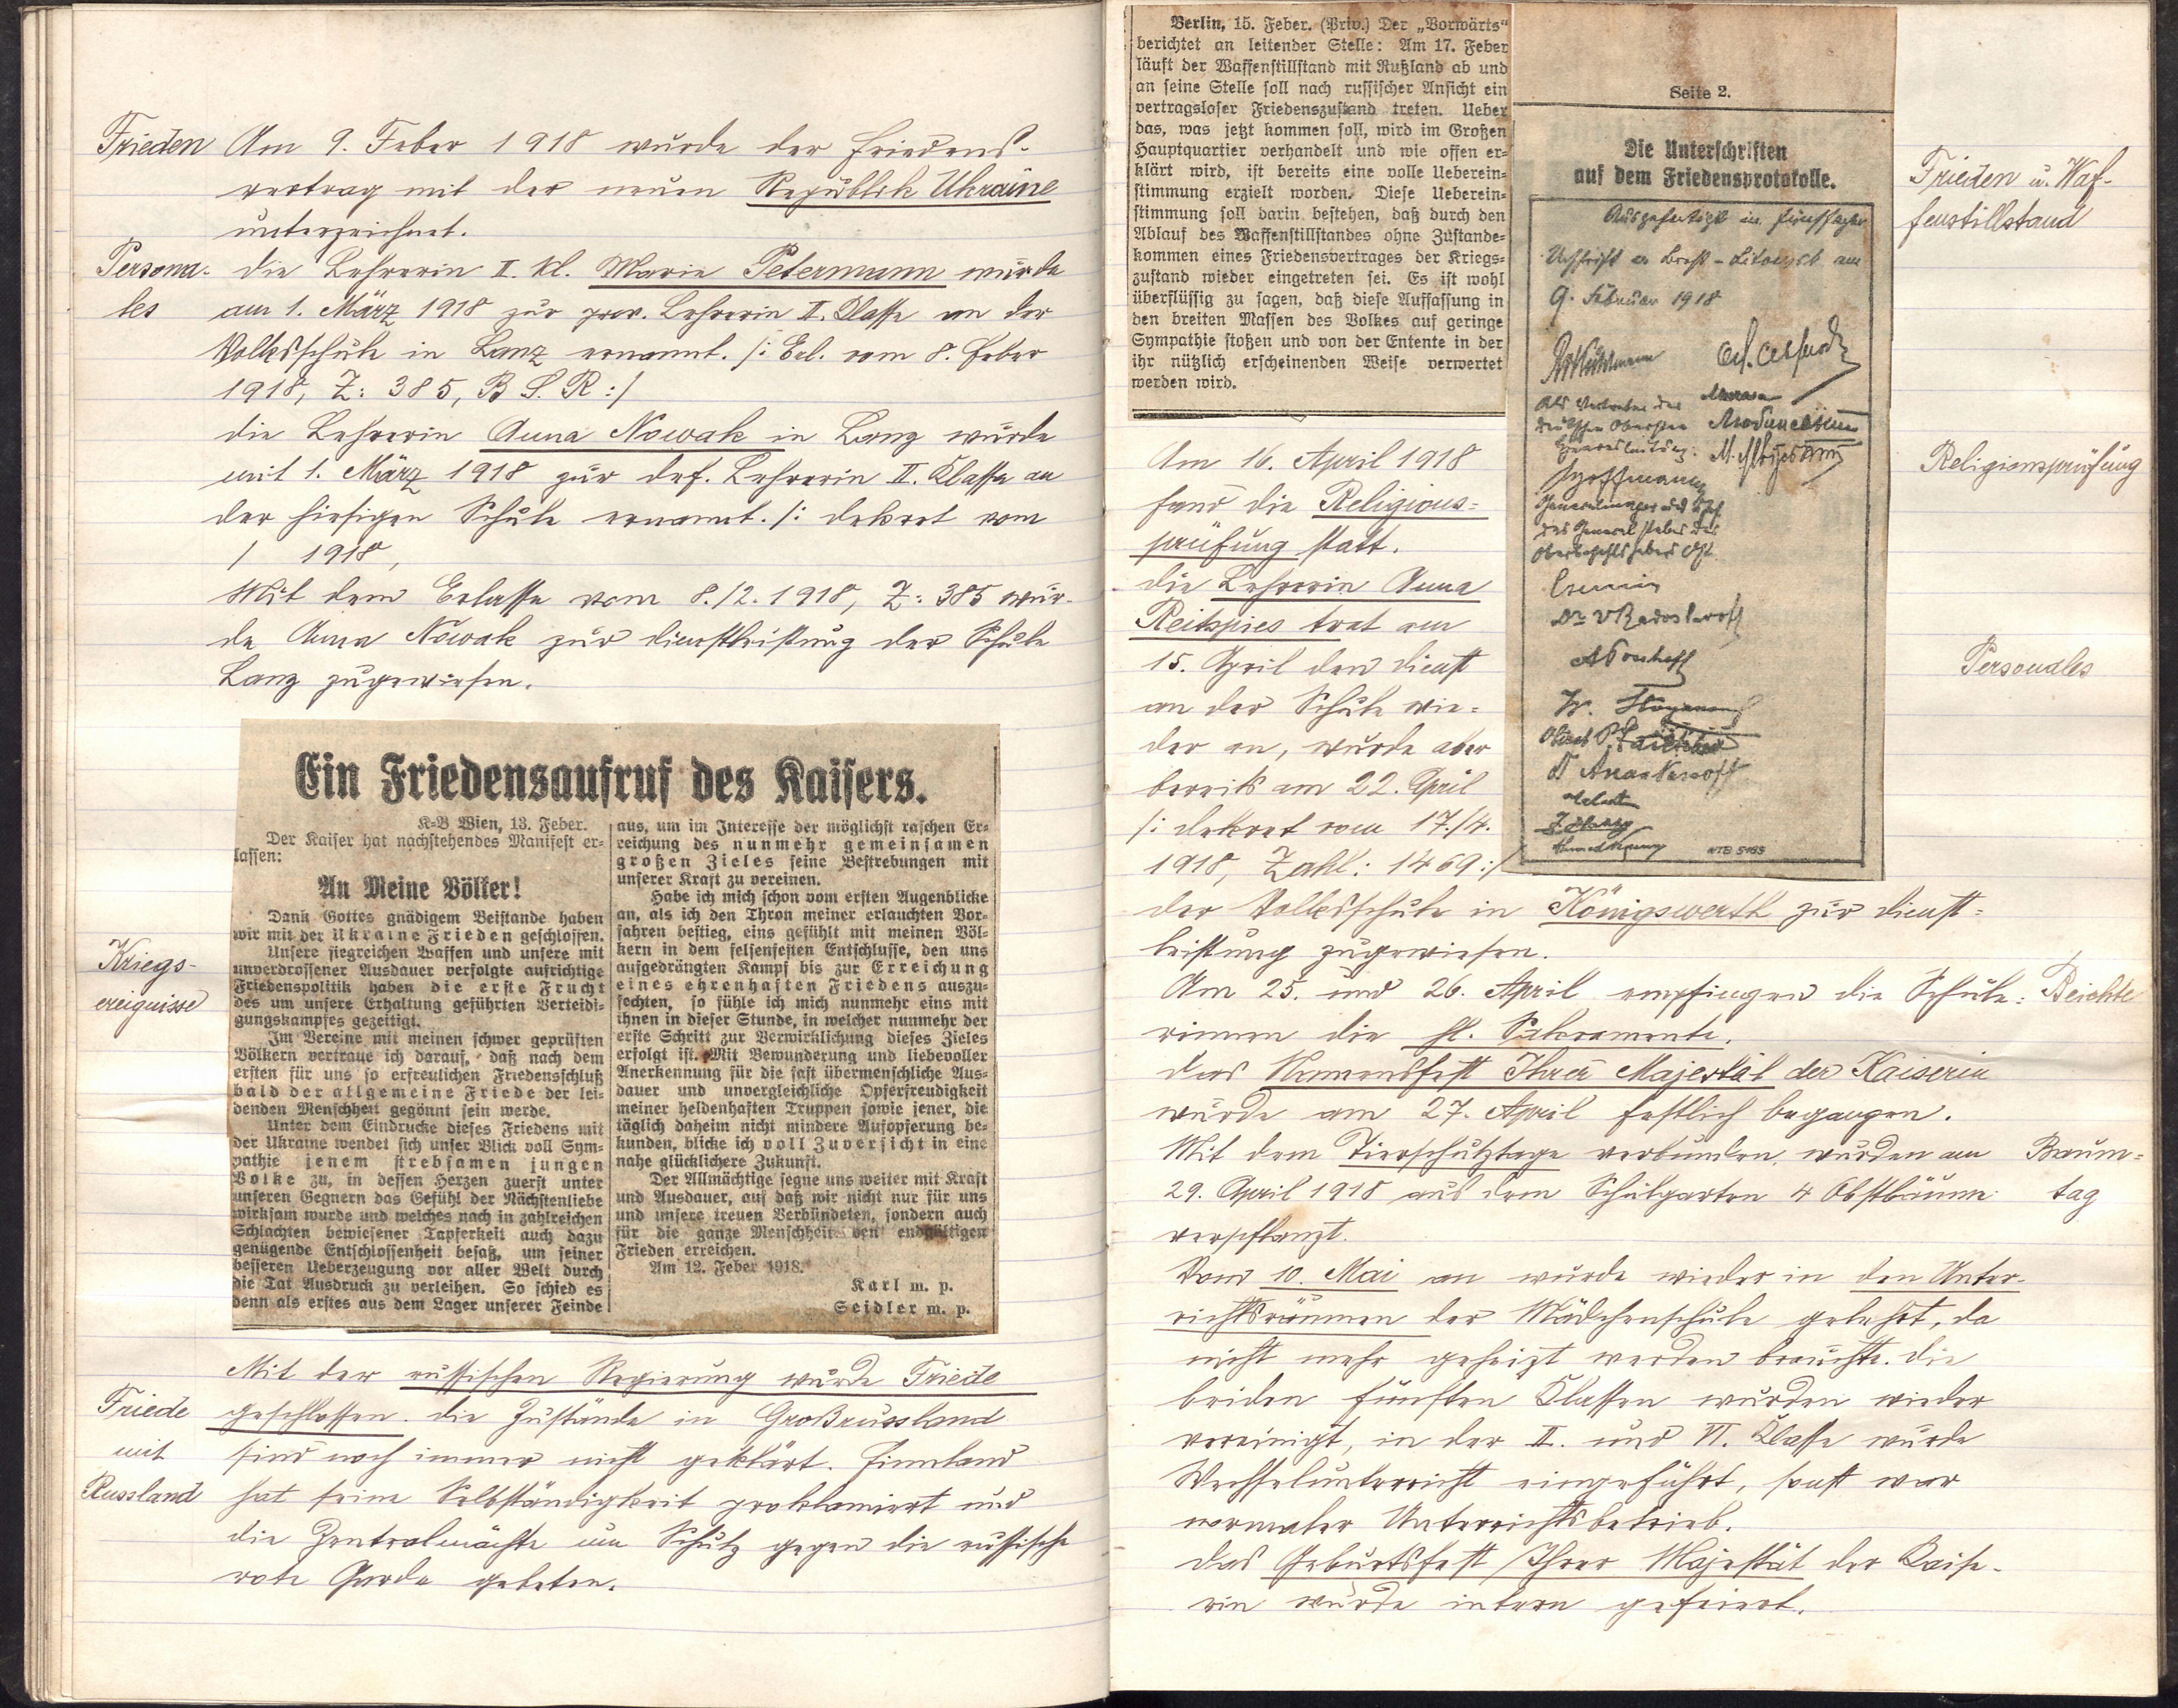 Frieden
Am 9. Feber 1918 wurde der Friedens-
vertrag mit der neuen Republik Ukraine
unterzeichnet.
Persona-
les
Die Lehrerin II. Kl. Marie Petermann wurde
am 1. März 1918 zur prov. Lehrerin II. Klasse an der
Volksschule in Lanz ernannt. /: Erl. vom 8. Feber
1918, Z: 385, B. S. R :/
Die Lehrerin Anna Nowak in Lanz wurde
mit 1. März 1918 zur def. Lehrerin II. Klasse an
der hiesigen Schule ernannt. /: Dekret vom
/ 1918,
Mit dem Erlasse vom 8./2. 1918, Z: 385 wur-
de Anna Nowak zur Dienstleistung der Schule
Lanz zugewiesen.
Kriegs-
ereignisse
Ein Friedensaufruf des Kaisers.
K=B Wien, 13. Feber.
Der Kaiser hat nachstehendes Manifest er=
lassen:
An Meine Völker!
Dank Gottes gnädigem Beistande haben
wir mit der Ukraine Frieden geschlossen.
Unsere siegreichen Waffen und unsere mit
unverdrossener Ausdauer verfolgte aufrichtige
Friedenspolitik haben die erste Frucht
des um unsere Erhaltung geführten Verteidi=
gungskampfes gezeitigt.
Im Vereine mit meinen schwer geprüften
Völkern vertraue ich darauf, daß nach dem
ersten für uns so erfreulichen Friedensschluß
bald der allgemeine Friede der lei=
denden Menschheit gegönnt sein werde.
Unter dem Eindrucke dieses Friedens mit
der Ukraine wendet sich unser Blick voll Sym=
pathie jenem strebsamen jungen
Volke zu, in dessen Herzen zuerst unter
unseren Gegnern das Gefühl der Nächstenliebe
wirksam wurde und welches nach in zahlreichen
Schlachten bewiesener Tapferkeit auch dazu
genügende Entschlossenheit besaß, um seiner
besseren Ueberzeugung vor aller Welt durch
die Tat Ausdruck zu verleihen. So schied es
denn als erstes aus dem Lager unserer Feinde
aus, um im Interesse der möglichst raschen Er=
reichung des nunmehr gemeinsamen
großen Zieles seine Bestrebungen mit
unserer Kraft zu vereinen.
Habe ich mich schon vom ersten Augenblicke
an, als ich den Thron meiner erlauchten Vor=
fahren bestieg, eins gefühlt mit meinen Völ=
kern in dem felsenfesten Entschlusse, den uns
aufgedrängten Kampf bis zur Erreichung
eines ehrenhaften Friedens auszu=
fechten, so fühle ich mich nunmehr eins mit
ihnen in dieser Stunde, in welcher nunmehr der
erste Schritt zur Verwirklichung dieses Zieles
erfolgt ist. Mit Bewunderung und liebevoller
Anerkennung für die fast übermenschliche Aus=
dauer und unvergleichliche Opferfreudigkeit
meiner heldenhaften Truppen sowie jener, die
täglich daheim nicht mindere Aufopferung be=
kunden, blicke ich voll Zuversicht in eine
nahe glücklichere Zukunft.
Der Allmächtige segne uns weiter mit Kraft
und Ausdauer, auf daß wir nicht nur für uns
und unsere treuen Verbündeten, sondern auch
für die ganze Menschheit den endgültigen
Frieden erreichen.
Am 12. Feber 1918.
Karl m. p.
Seidler m. p.
Friede
mit
Russland
Mit der russischen Regierung wurde Friede
geschlossen. Die Zustände in Großrussland
sind noch immer nicht geklärt. Finnland
hat seine Selbständigkeit proklamiert und
die Zentralmächte um Schutz gegen die russische
rote Garde gebeten.
Berlin, 15. Feber. (Priv.) Der „Vorwärts“
berichtet an leitender Stelle: Am 17. Feber
läuft der Waffenstillstand mit Rußland ab und
an seine Stelle soll nach russischer Ansicht ein
vertragsloser Friedenszustand treten. Ueber
das, was jetzt kommen soll, wird im Großen
Hauptquartier verhandelt und wie offen er=
klärt wird, ist bereits eine volle Ueberein=
stimmung erzielt worden. Diese Ueberein=
stimmung soll darin bestehen, daß durch den
Ablauf des Waffenstillstandes ohne Zustande=
kommen eines Friedensvertrages der Kriegs=
zustand wieder eingetreten sei. Es ist wohl
überflüssig zu sagen, daß diese Auffassung in
den breiten Massen des Volkes auf geringe
Sympathie stoßen und von der Entente in der
ihr nützlich erscheinenden Weise verwertet
werden wird.
Seite 2.
Die Unterschriften
auf dem Friedensprotokolle.
Ausgefertigt in fünffacher
Urschrift in Brest-Litowsk am
9. Februar 1918
Als Vertreter der
Deutschen Obersten
Heeresleitung:
Hoffmann
Generalmajor und Chef
des Generalstabes des
Oberbefehlshabers Ost
Czernin
Dr VRadoslawoff
WTB 5185
Frieden u. Waf-
fenstillstand
Am 16. April 1918
fand die Religions=
prüfung statt.
Religionsprüfung
Die Lehrerin Anna
Reitspies trat am
15. April den Dienst
an der Schule wie=
der an, wurde aber
bereits am 22. April
/: Dekret vom 17./4.
1918, Zahl: 1469:/
der Volksschule in Königswerth zur Dienst=
leistung zugewiesen.
Personales
Am 25. und 26. April empfingen die Schüle=
rinnen die hl. Sakramente.
Beichte
Das Namensfest Ihrer Majestät der Kaiserin
wurde am 27. April festlich begangen.
Mit dem Tierschutztage verbunden, wurden am
29. April 1918 aus dem Schulgarten 4 Obstbäume
verpflanzt.
Baum=
tag
Vom 10. Mai an wurde wieder in den Unter-
richtsräumen der Mädchenschule gelehrt, da
nicht mehr geheizt werden brauchte. Die
beiden fünften Klassen wurden wieder
vereinigt, in der II. und VI. Klasse wurde
Wechselunterricht eingeführt, sonst war
normaler Unterrichtsbetrieb.
Das Geburtsfest Ihrer Majestät der Kaise-
rin wurde intern gefeiert.